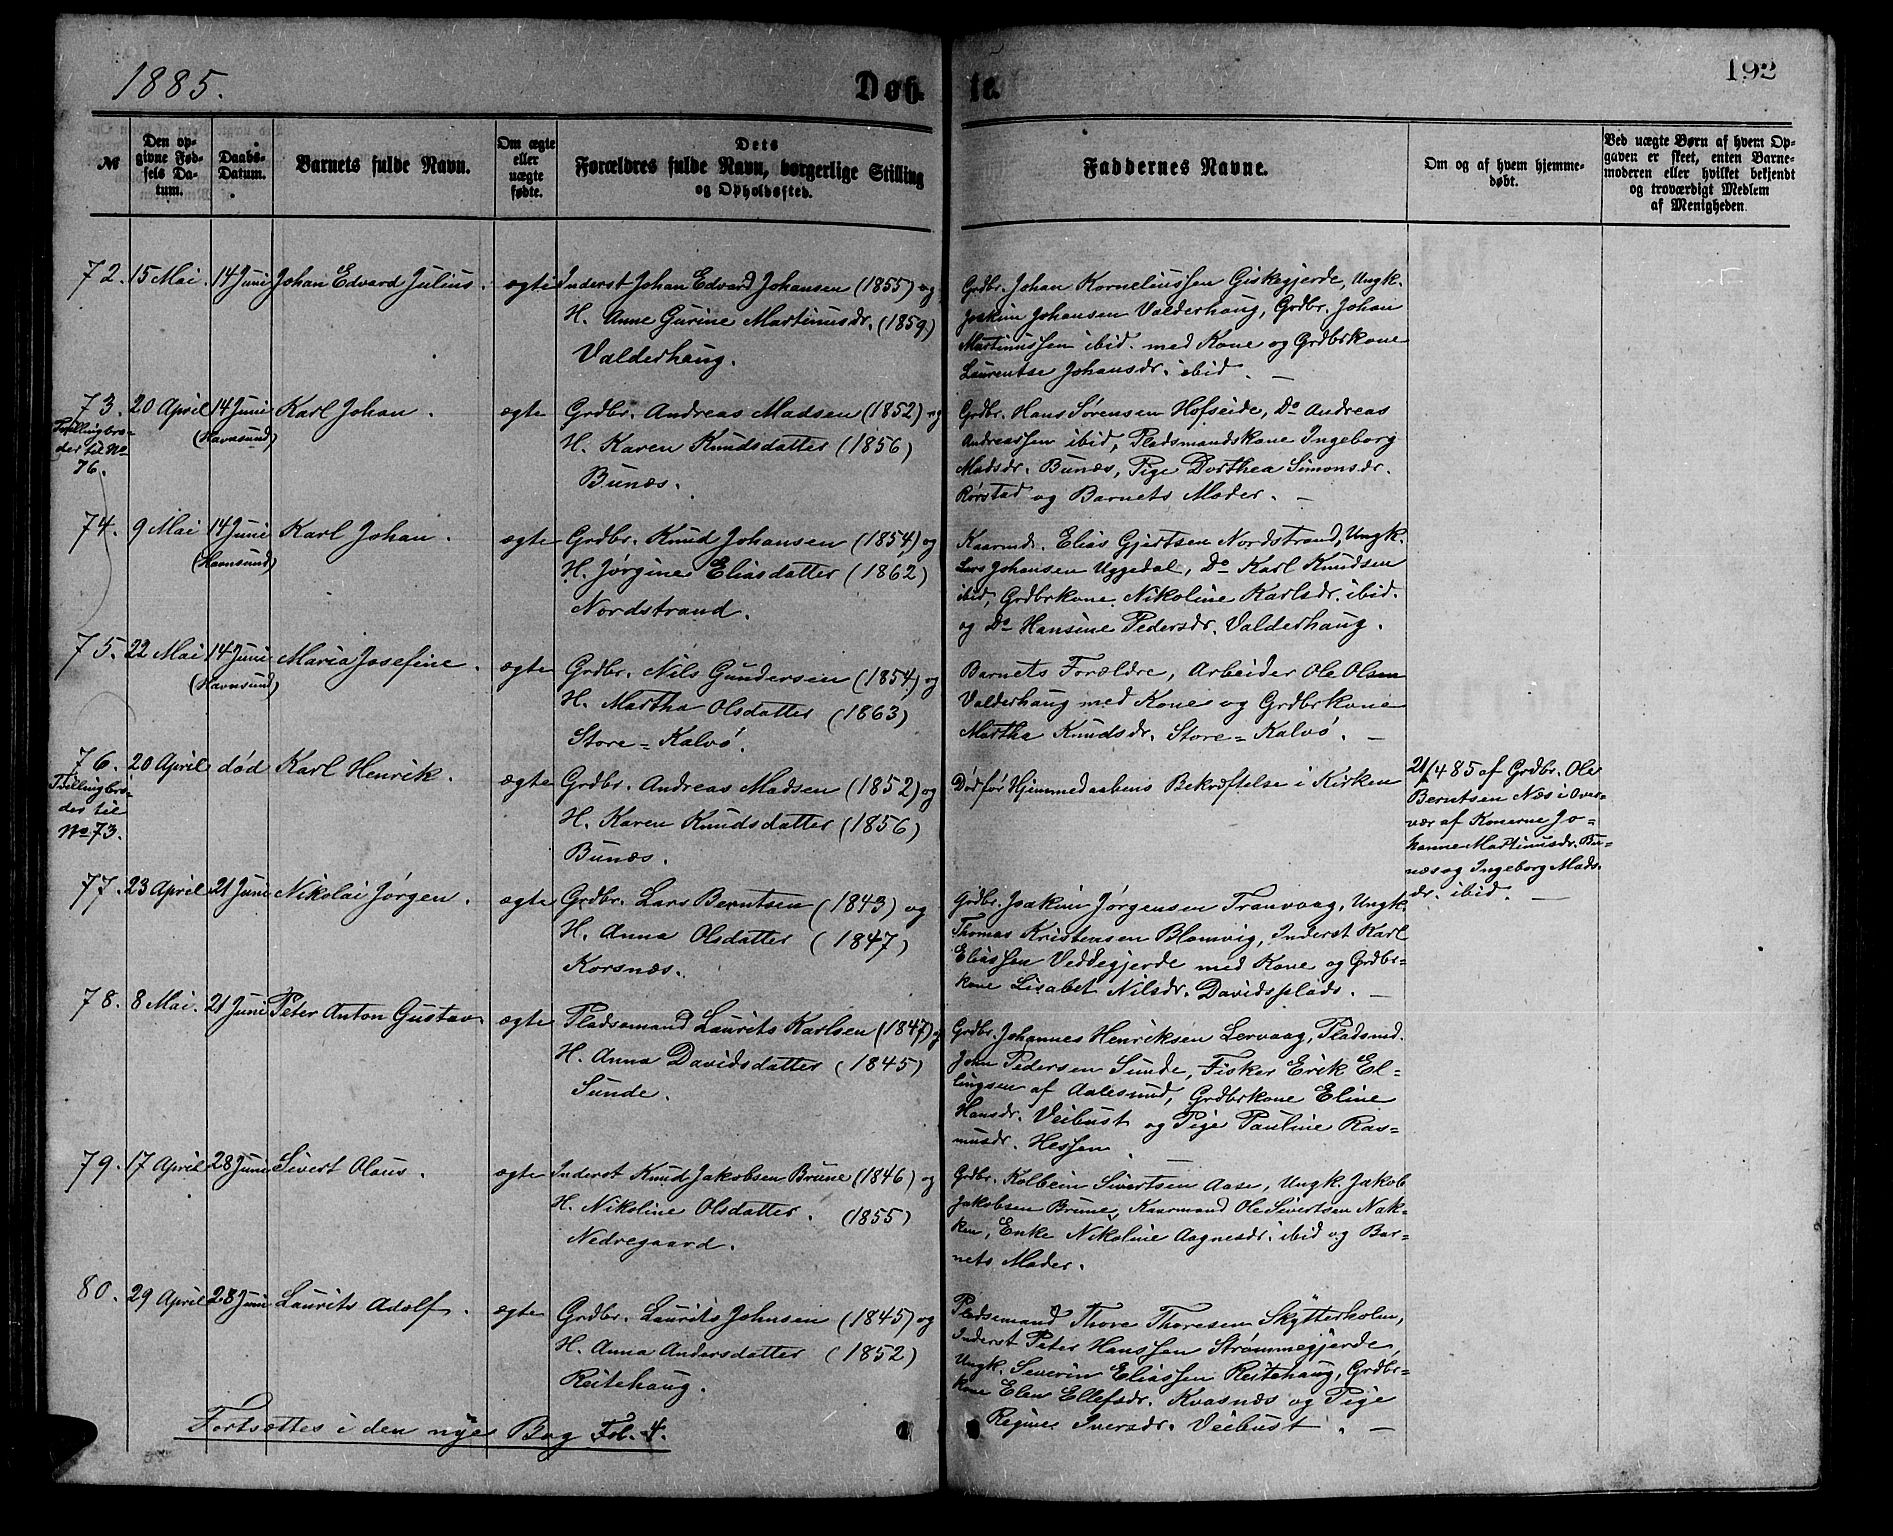 1885.
Døbte.
192
№
Den opgivne Fødsels Datum.
Daabs-Datum.
Barnets fulde Navn.
Om ægte eller uægte fødte.
Dets Forældres fulde Navn, borgerlige Stilling og Opholdssted.
Faddernes Navne.
Om og af hvem hjemmedøbt.
Ved uægte Børn af hvem Opgaven er skeet, enten Barnemoderen eller hvilket bekjendt og troværdigt Medlem af Menigheden.
72. 15 Mai. 14 Juni Johan Edvard Julius. ægte
Inderst Johan Edvard Johansen (1855) og
H. Anne Gurine Martinusdr. (1859)
Valderhaug.
Grdbr. Johan Korneliussen Giskegjerde, Ungk.
Joakim Johansen Valderhaug, Grdbr. Johan
Martinussen ibid. med Kone og Grdbrkone
Laurentse Johansdr. ibid. —
73. 20 April 14 Juni Karl Johan. ægte
Tvillingbro-
der til No
76.
(Havnsund)
Grdbr. Andreas Madsen (1852) og
H. Karen Knudsdatter (1856)
Bunæs.
Grdbr. Hans Sørensen Hofseide, Do Andreas
Andreassen ibid, Pladsmandskone Ingeborg
Madsdr. Bunæs, Pige Dorthea Simonsdr.
Rørstad og Barnets Moder. —
74. 9 Mai 14 Juni Karl Johan. ægte
(Havnsund)
Grdbr. Knud Johansen (1854) og
H. Jørgine Eliasdatter (1862)
Nordstrand.
Kaarmd. Elias Gjertsen Nordstrand, Ungk.
Lars Johansen Uggedal, Do Karl Knudsen
ibid, Grdbrkone Nikoline Karlsdr. ibid.
og Do Hansine Pedersdr. Valderhaug.
75. 22 Mai 14 Juni Maria Josefine. ægte
(Havnsund)
Grdbr. Nils Gundersen (1854) og
H. Martha Olsdatter (1863)
Store=Kalvö.
Barnets Forældre, Arbeider Ole Olsen
Valderhaug med Kone og Grdbrkone
Martha Knudsdr. Store=Kalvö. —
76. 20 April død Karl Henrik. ægte
Tvillingbro-
der til
No 73.
Grdbr. Andreas Madsen (1852) og
H. Karen Knudsdatter (1856)
Bunæs.
Død før Hjemmedaabens Bekræftelse i Kirken
21/4 85 af Grdbr. Ole
Berntsen Næs i Over-
vær af Konerne Jo-
hanne Martinusdr. Bu-
næs og Ingeborg Mads-
dr. ibid. —
77. 23 April 21 Juni Nikolai Jørgen. ægte
Grdbr. Lars Berntsen (1843) og
H. Anna Olsdatter (1847)
Korsnæs.
Grdbr. Joakim Jørgensen Tranvaag, Ungk.
Thomas Kristensen Blomvig, Inderst Karl
Eliassen Veddegjerde med Kone og Grdbr=
kone Lisabet Nilsdr. Davidsplads. —
78. 8 Mai. 21 Juni Peter Anton Gustav. ægte
Pladsemand Laurits Karlsen (1847) og
H. Anna Davidsdatter (1845)
Sunde.
Grdbr. Johannes Henriksen Lervaag, Pladsmd.
John Pedersen Sunde, Fisker Erik El=
lingsen af Aalesund, Grdbrkone Eline
Hansdr. Veibust og Pige Pauline Ras=
musdr. Hessen.
79. 17 April 28 Juni Sivert Olaus. ægte
Inderst Knud Jakobsen Brune (1846) og
H. Nikoline Olsdatter. (1855)
Nedregaard.
Grdbr. Kolbein Sivertsen Aase, Ungk. Jakob
Jakobsen Brune, Kaarmand Ole Sivertsen Nak-
ken, Enke Nikoline Aagnesdr. ibid og Bar=
nets Moder.
80. 29 April 28 Juni Laurits Adolf. ægte
Grdbr. Laurits Johnsen (1845) og
H. Anna Andersdatter (1852)
Reitehaug.
Pladsemand Thore Thoresen Skytterholm,
Inderst Peter Hanssen Strømmegjerde,
Ungk. Severin Eliassen Reitehaug, Grdbr=
kone Elen Ellefsdr. Kvasnæs og Pige
Regine Iversdr. Veibust. —
Fortsættes i den nye Bog Fol. 4.